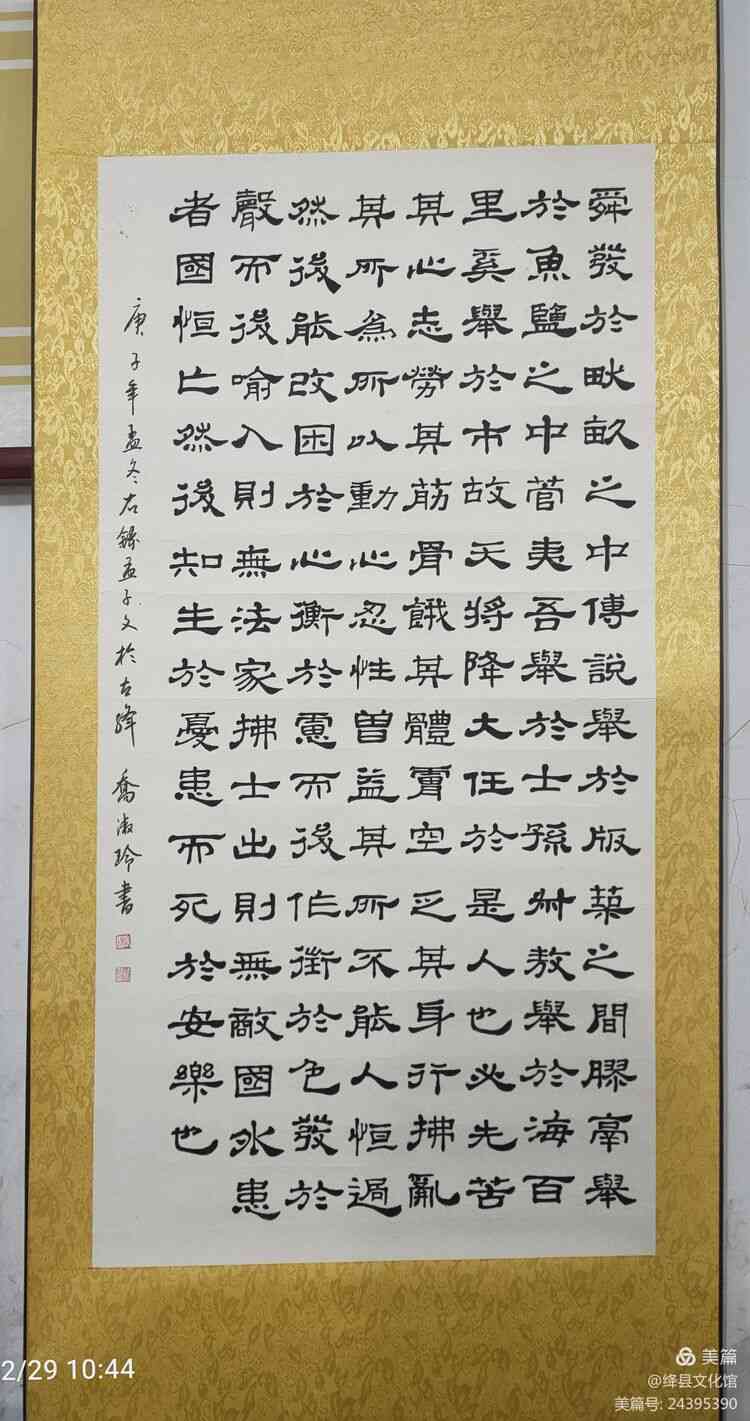 舜發於畎畝之中傅說舉於版築之間膠鬲舉
於魚鹽之中管夷吾舉於士孫叔敖舉於海百
里奚舉於市故天將降大任於是人也必先苦
其心志勞其筋骨餓其體膚空乏其身行拂亂
其所為所以動心忍性曾益其所不能人恒過
然後能改困於心衡於慮而後作徵於色發於
聲而後喻入則無法家拂士出則無敵國外患
者國恒亡然後知生於憂患而死於安樂也
庚子年孟冬右錄孟子文於古絳 喬淑玲書
2/29 10:44
美篇
@绛县文化馆
美篇号: 24395390